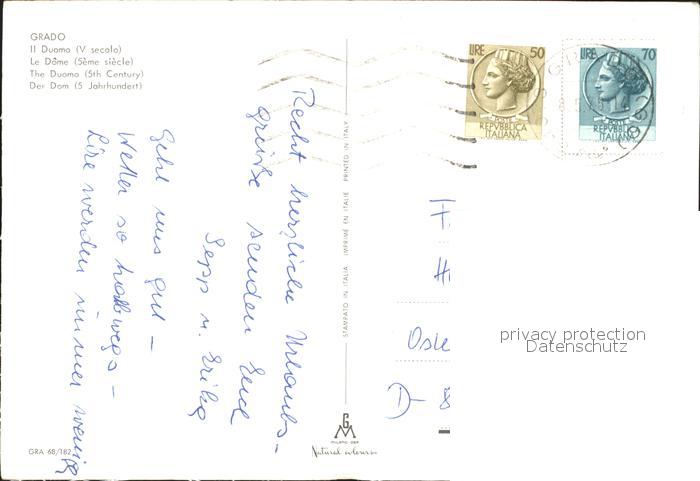 GRADO
Il Duomo (V secolo)
Le Dôme (5ème siècle)
The Duomo (5th Century)
Der Dom (5 Jahrhundert)
Recht herzliche Urlaubs-
grüße senden Euch
Sepp u. Erika
Geht uns gut –
Wetter so halbwegs –
Lire werden immer wenig
STAMPATO IN ITALIA IMPRIMÉ EN ITALIE PRINTED IN ITALY
GRA 68/182
G
M
MILANO
Natural colours
LIRE 50
POSTE
REPVBBLICA
ITALIANA
LIRE 70
POSTE
REPVBBLICA
ITALIANA
H
H
Oste
D 8
privacy protection
Datenschutz